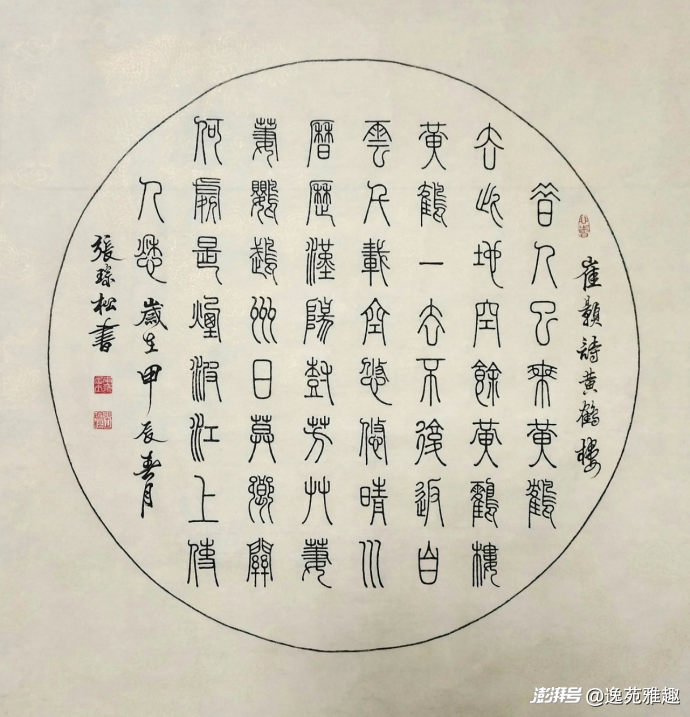 崔顥詩黃鶴樓
昔人已乘黃鶴
去此地空餘黃鶴樓
黃鶴一去不復返白
雲千載空悠悠晴川
曆歷漢陽樹芳艸萋
萋鸚鵡州日莫鄉關
何處是煙波江上使
人愁 歲在甲辰春月
張琮松書
澎湃号@逸苑雅趣